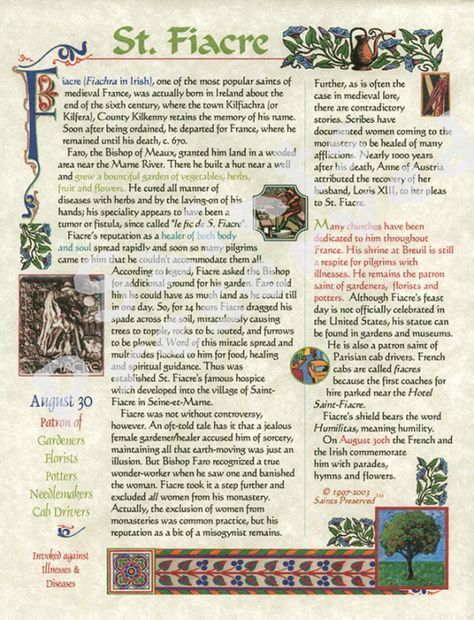 St. Fiacre
Fiacre (Fiachra in Irish), one of the most popular saints of
medieval France, was actually born in Ireland about the
end of the sixth century, where the town Kilfiachra (or
Kilfera), County Kilkenny retains the memory of his name.
Soon after being ordained, he departed for France, where he
remained until his death, c. 670.
Faro, the Bishop of Meaux, granted him land in a wooded
area near the Marne River. There he built a hut near a well
and grew a bountiful garden of vegetables, herbs,
fruit and flowers. He cured all manner of
diseases with herbs and by the laying-on of his
hands; his speciality appears to have been a
tumor or fistula, since called "le fic de S. Fiacre".
Fiacre's reputation as a healer of both body
and soul spread rapidly and soon so many pilgrims
came to him that he couldn't accommodate them all.
According to legend, Fiacre asked the Bishop
for additional ground for his garden. Faro told
him he could have as much land as he could till
in one day. So, for 24 hours Fiacre dragged his
spade across the soil, miraculously causing
trees to topple, rocks to be routed, and furrows
to be plowed. Word of this miracle spread and
multitudes flocked to him for food, healing
and spiritual guidance. Thus was
established St. Fiacre's famous hospice
which developed into the village of Saint-
Fiacre in Seine-et-Marne.
Fiacre was not without controversy,
however. An oft-told tale has it that a jealous
female gardener/healer accused him of sorcery,
maintaining all that earth-moving was just an
illusion. But Bishop Faro recognized a true
wonder-worker when he saw one and banished
the woman. Fiacre took it a step further and
excluded all women from his monastery.
Actually, the exclusion of women from
monasteries was common practice, but his
reputation as a bit of a misogynist remains.
August 30
Patron of
Gardeners
Florists
Potters
Needlemakers
Cab Drivers
Invoked against
Illnesses &
Diseases
Further, as is often the
case in medieval lore,
there are contradictory
stories. Scribes have
documented women coming to the
monastery to be healed of many
afflictions. Nearly 1000 years
after his death, Anne of Austria
attributed the recovery of her
husband, Louis XIII, to her pleas
to St. Fiacre.
Many churches have been
dedicated to him throughout
France. His shrine at Breuil is still
a respite for pilgrims with
illnesses. He remains the patron
saint of gardeners, florists and
potters. Although Fiacre's feast
day is not officially celebrated in
the United States, his statue can
be found in gardens and museums.
He is also a patron saint of
Parisian cab drivers. French
cabs are called fiacres
because the first coaches for
hire parked near the Hotel
Saint-Fiacre.
Fiacre's shield bears the word
Humilitas, meaning humility.
On August 30th the French and
the Irish commemorate
him with parades,
hymns and flowers.
© 1997-2003
Saints Preserved ™